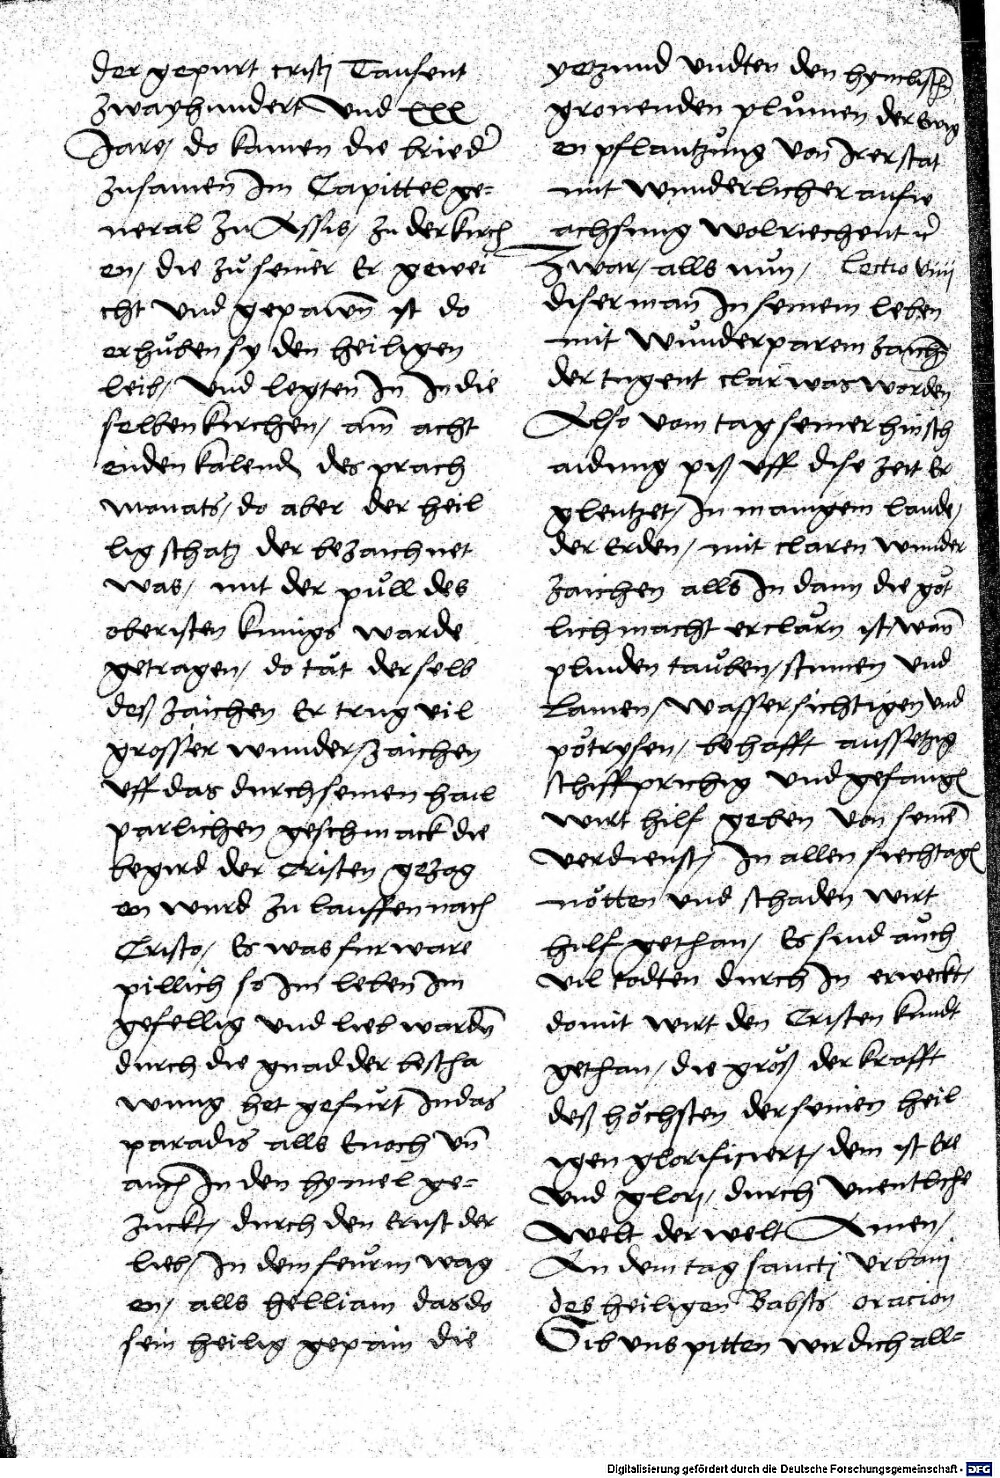 der gepurt cristj Tausent
zwayhundert vnd xxx
Jare / do kamen die brieder
zusamen Im Capittel ge=
neral zu Assis / zu der kirch
en / die zů seiner Er gewei
cht vnd gepawn̄ ist do
erhůben sy den heiligen
leib / vnd legten In In die
selben kirchen / am̄ acht
enden kalend des prach
monats / do aber der heil
lig schatz der bezaichnet
was / mit der půll des
obersten kunigs warde
getragen / do tät der selb
deß zaichen Er trug vil
grosser wunder / zaichen
vff das durch seinen hail
parlichen geschmack die
begird der Cristen gezog
en wurd zu lauffen nach
Cristo / Es was fur ware
pillich so Im leben Im
gefellig vnd lieb wardn̄
durch die gnad der bescha
wung het gefůrt In das
paradis alls Enoch vn̄
auch In den hymel ge=
zuckt / durch den ernst der
lieb / In dem feůrin wag
en / alls helliam das do
sein heilig gepain die
yezund vndten den hymlisch̄
gronenden plůmen der ewig
en pflantzůng von Irer stat
mit wunderlicher aufw
achsung wolriechent ist
Zwar / alls nůn / Lectio viiij
diser man In seinem leben
mit wůnderparem zaich̄
der tugent clar was worden
Also vom tag seiner hinsch
aidung piß vff dise zeit Er
glentzet / In manigem lande /
der Erden / mit claren wunder
zaichen alls In dann die göt
lich macht erclärn ist / wan̄
plinden tauben / stumen vnd
Lamen / wassersichtigen vnd
pötrysen / behafft aussetzig
schiffprichig vnd gefangn̄
wirt hilf geben von seinē
verdienst / In allen siechtagn̄
nötten vnd schaden wirt
hilf gethan / Es sind auch
vil todten durch In erweckt /
domit wirt den Cristen kundt
gethan / die größ der krafft
deß höchsten der seinen heil
igen glorificiert / dem ist Ere
vnd glorj / durch vnentliche
welt der welt Amen /
An dem tag sancti vrbanj
des heiligen Babsts oracion
Gib vns pitten wir dich all=
Digitalisierung gefördert durch die Deutsche Forschungsgemeinschaft - DFG